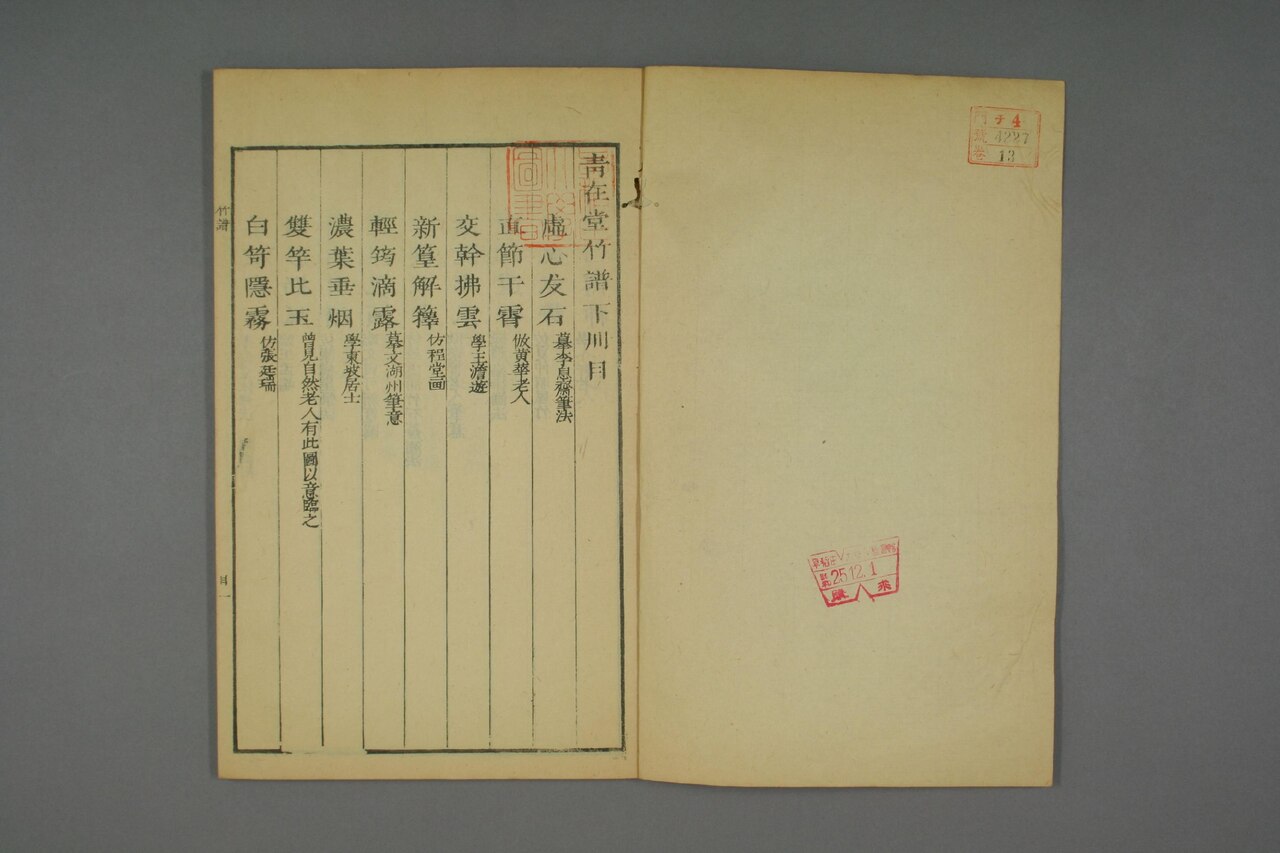 門 チ 4
號 4227
卷 13
25.12.1
青在堂竹譜下册目
虛心友石 摹李息齋筆法
直節干霄 倣黃華老人
交幹拂雲 學王澹遊
新篁解籜 仿程堂画
輕筠滴露 摹文湖州筆意
濃葉垂烟 學東坡居士
雙竿比玉 曾見自然老人有此圖以意臨之
白笴隱霧 仿張廷瑞
竹譜
目一